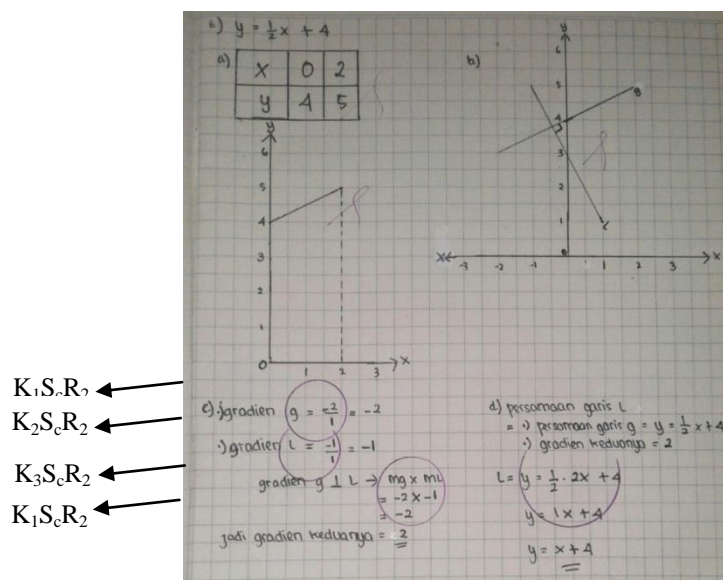 y = 1/2 x + 4
a)
x 0 2
y 4 5
y
6
5
4
3
2
1
0 1 2 3 x
b)
6
5
g
4
3
2
1
L
0
x -3 -2 -1 1 2 3 x
K1ScR2
K2ScR2
K3ScR2
K1ScR2
c) .) gradien g = -2/1 = -2
.) gradien L = -1/1 = -1
gradien g ⊥ L → mg x mL
= -2 x -1
= -2
jadi gradien keduanya = 2
d) persamaan garis L
= .) persamaan garis g = y = 1/2 x + 4
.) gradien keduanya = 2
L = y = 1/2 . 2x + 4
y = 1x + 4
y = x + 4